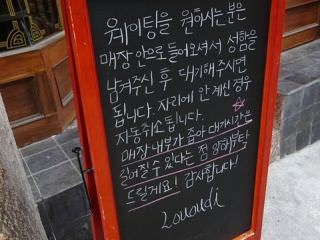 웨이팅을 원하시는 분은
매장 안으로 들어오셔서 성함을
남겨주신 후 대기해주시면
됩니다. 자리에 안 계신 경우
자동취소됩니다.
매장 내부가 좁아 대기시간은
길어질 수 있다는 점 양해부탁
드릴게요! 감사합니다!
Lououdi